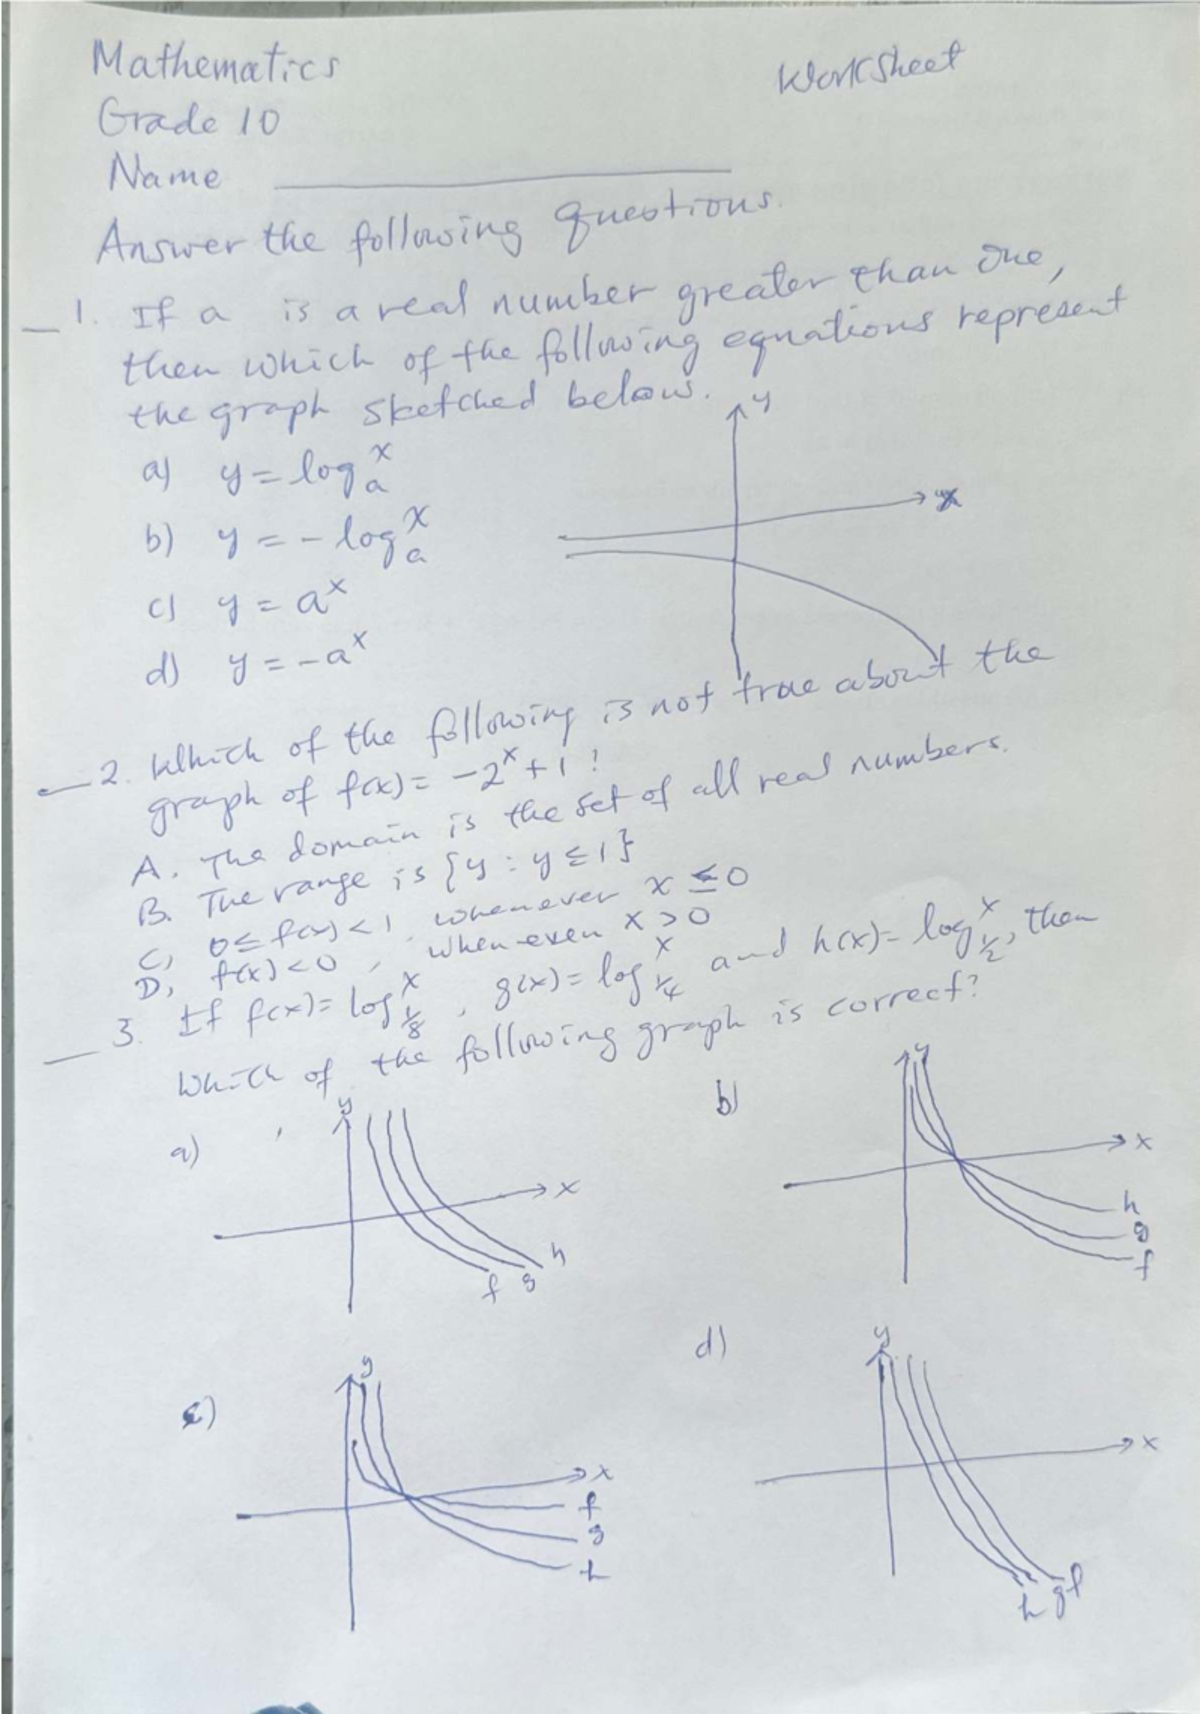 Mathematics
Worksheet
Grade 10
Name
Answer the following questions.
1. If a is a real number greater than one,
then which of the following equations represent
the graph sketched below.
a) y = logₐˣ
b) y = - logₐˣ
c) y = aˣ
d) y = -aˣ
y
x
2. Which of the following is not true about the
graph of f(x) = -2ˣ + 1?
A. The domain is the set of all real numbers.
B. The range is {y : y ≤ 1}
C, 0 ≤ f(x) < 1, whenever x ≤ 0
D, f(x) < 0, when even x > 0
3. If f(x) = log_{1/8}^x, g(x) = log_{1/4}^x and h(x) = log_{1/2}^x, then
which of the following graph is correct?
a)
y
x
f g h
b)
y
x
h
g
f
c)
y
x
f
g
h
d)
y
x
h g f